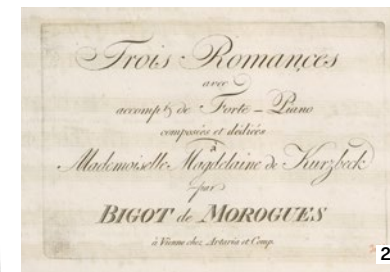 Trois Romances
avec
accompt de Forte - Piano
composées et dédiées
à
Mademoiselle Magdelaine de Kurzbeck
par
BIGOT de MOROGUES
à Vienne chez Artaria et Comp.
2